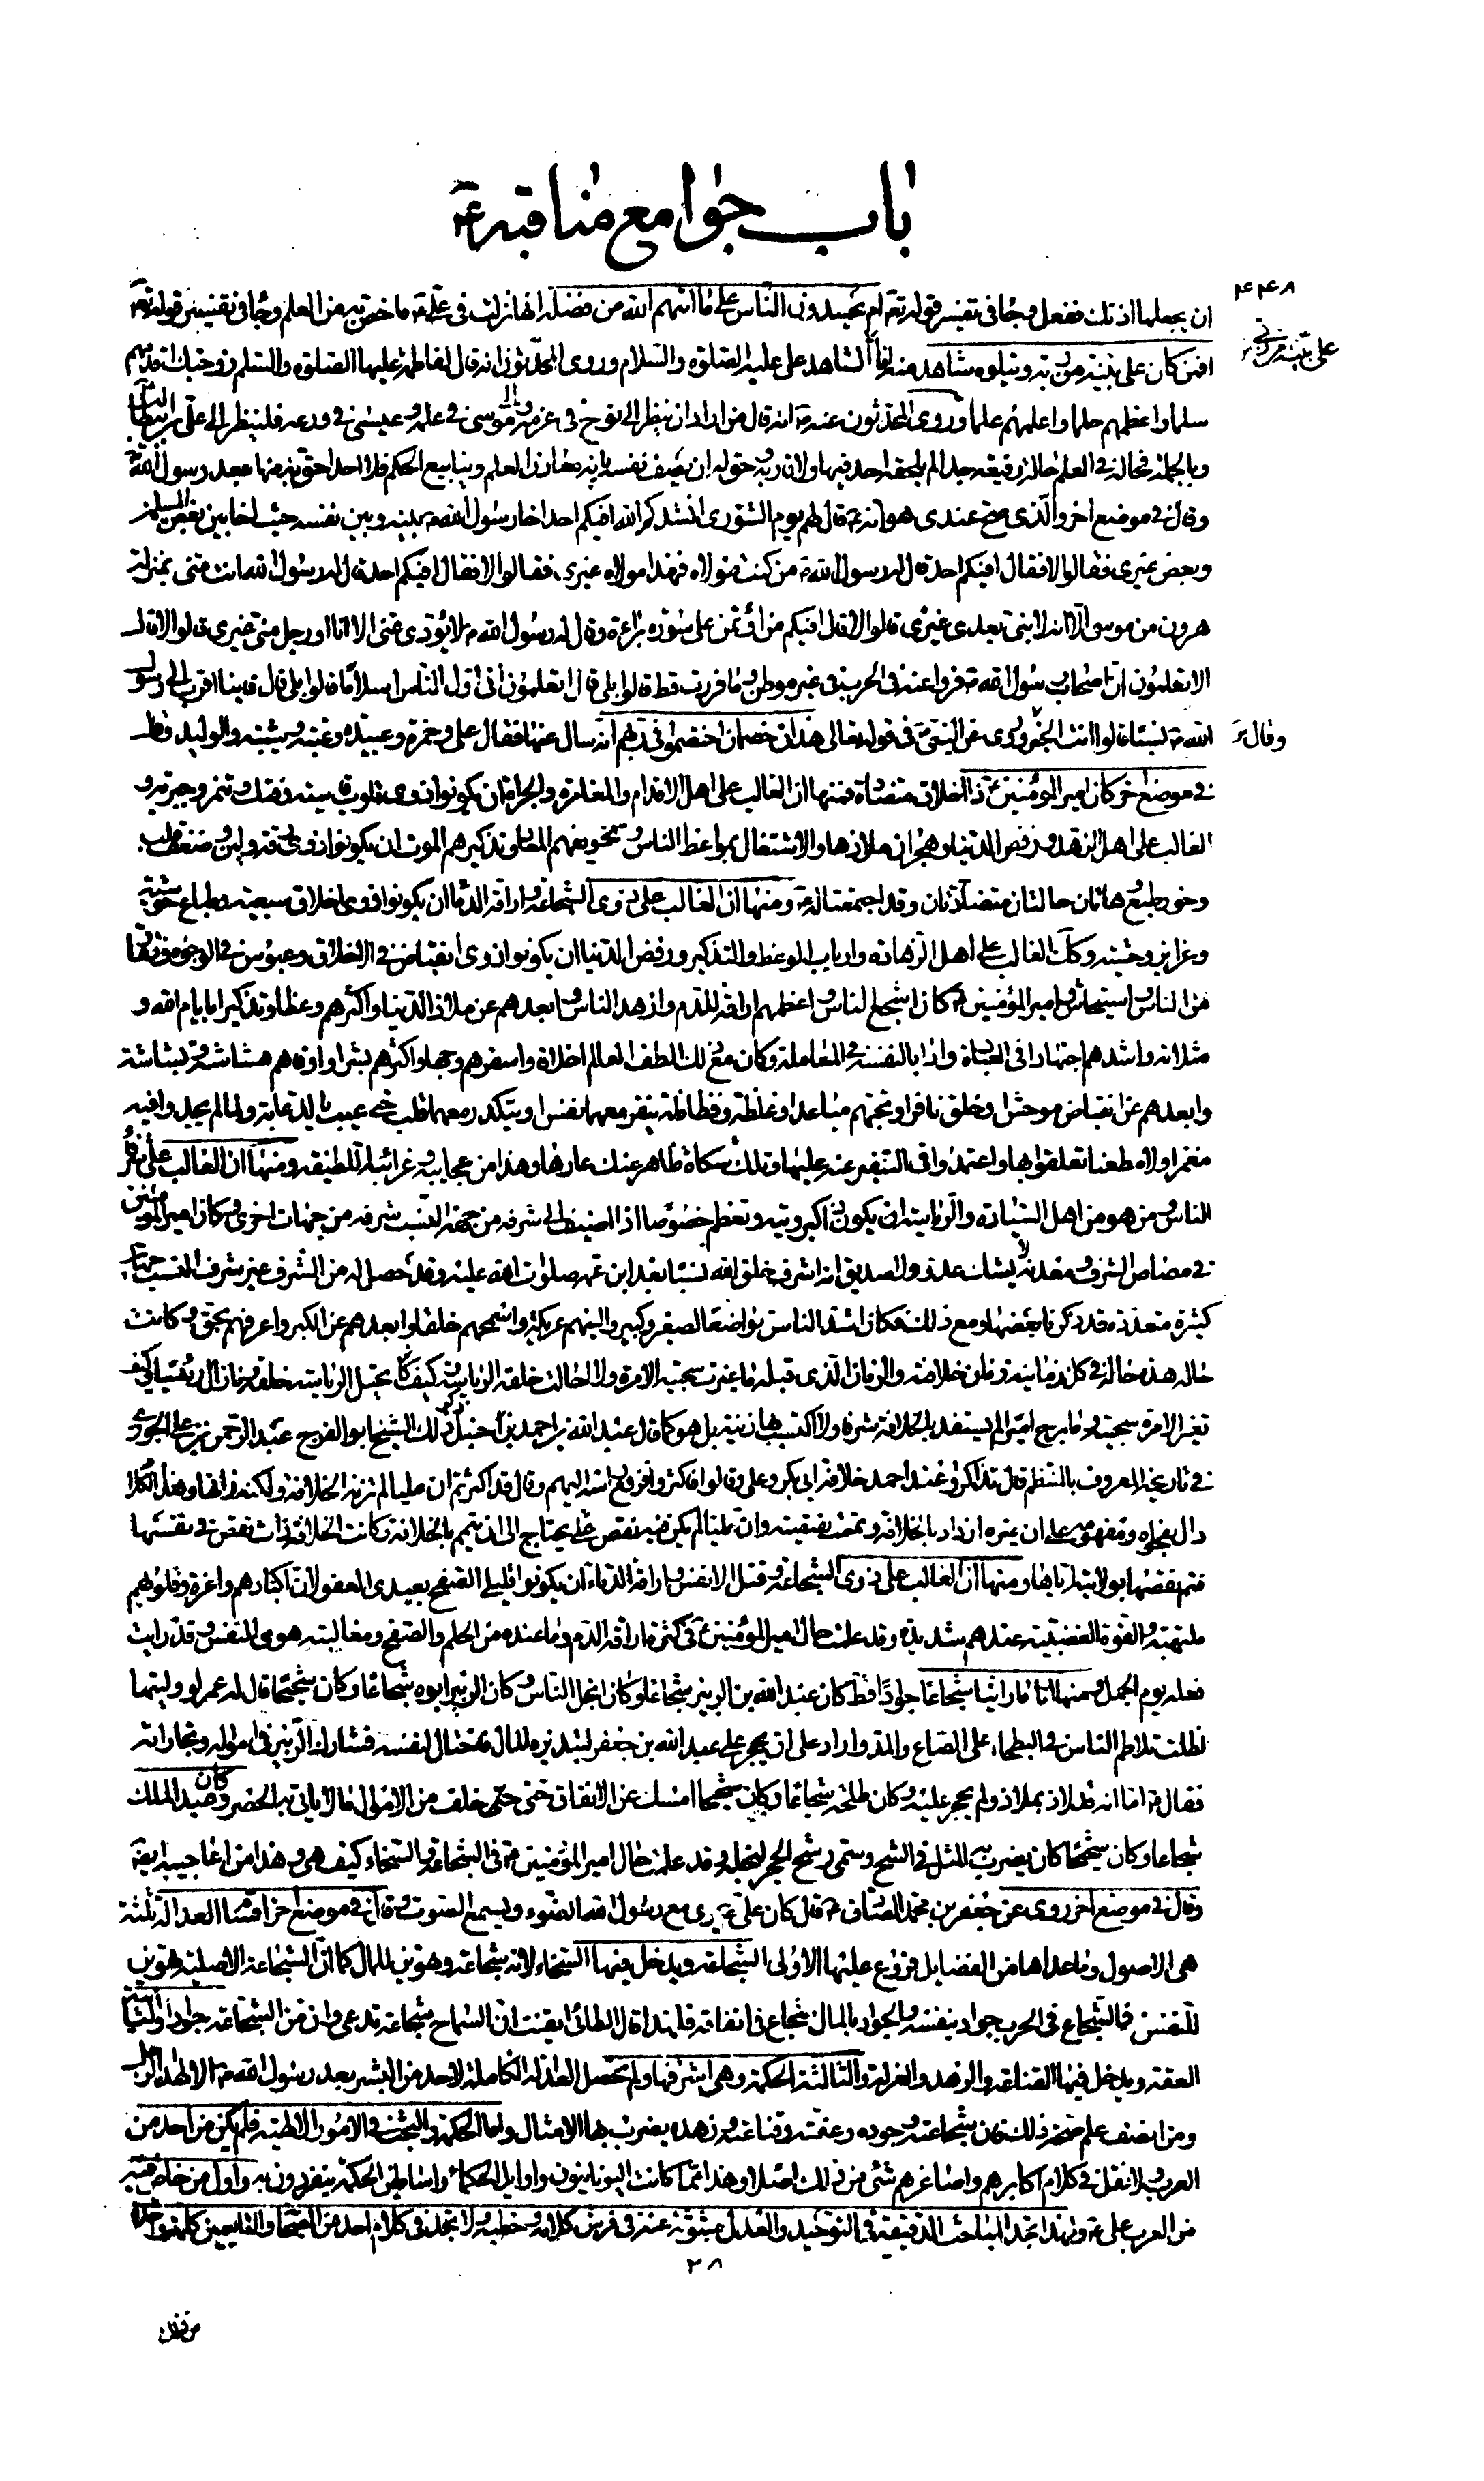 باب جوامع مناقبه ع
٤٤٨
على بينة من ربه
ان يجعلها اذنك ففعل وجاء في تفسير قوله تع ام يحسدون الناس على ما اتيهم الله من فضله انها نزلت في على ع ما خص به من العلم وجاء في تفسير قوله تع
افمن كان على بينة من ربه ويتلوه شاهد منه ان الشاهد على عليه الصلوة والسلام وروى المحدثون انه قال لفاطمة عليها الصلوة والسلم زوجتك اقدمهم
سلما واعظمهم حلما واعلمهم علما وروى المحدثون عنه ص انه قال من اراد ان ينظر الى نوح في عزمه والى موسى في علمه وعيسى في ورعه فلينظر الى على بن ابيطالب
وبالجملة فحاله في العلم حالة رفيعة جدا لم يلحقه احد فيها ولا قاربه وحق له ان يصف نفسه بانه معادن العلم وينابيع الحكم فلا احد احق بها منها بعد رسول الله ص
وقال في موضع اخر والذى صح عندى هو انه ع قال لهم يوم الشورى انشدكم الله افيكم احد اخا رسول الله ص بينه وبين نفسه حيث اخا بين بعض المسلمين
وبعض غيرى فقالوا لا فقال افيكم احد قال له رسول الله ص من كنت مولاه فهذا مولاه غيرى فقالوا لا فقال افيكم احد قال له رسول الله انت منى بمنزلة
هرون من موسى الا انه لا نبى بعدى غيرى قالوا لا قال افيكم من اؤتمن على سورة براءة وقال له رسول الله ص لا يؤدى عنى الا انا او رجل منى غيرى قالوا لا قال
الا تعلمون ان اصحاب رسول الله ص فروا عنه في الحرب في غير موطن وما فررت قط قالوا بلى قال اتعلمون انى اول الناس اسلاما قالوا بلى قال فاينا اقرب الى رسول
الله ص نسبا قالوا انت الخبر وروى عن النبى ص في قوله تعالى هذان خصمان اختصموا في ربهم انه سئل عنها فقال على وحمزة وعبيدة وعتبة وشيبة والوليد وقال
وقال
في موضع اخر كان امير المؤمنين ع ذا اخلاق متضادة فمنها ان الغالب على اهل الاقدام والمغامرة والجراة ان يكونوا ذوى قلوب قاسية وفتك وتنمر وجبرية و
الغالب على اهل الزهد ورفض الدنيا وهجران ملاذها والاشتغال بمواعظ الناس وتخويفهم المعاد وتذكيرهم الموت ان يكونوا ذوى رقة ولين وضعف قلب
وخور طبع وهاتان حالتان متضادتان وقد اجتمعتا له ع ومنها ان الغالب على ذوى الشجاعة واراقة الدماء ان يكونوا ذوى اخلاق سبعية وطباع حوشية
وغرايز وحشية وكك الغالب على اهل الزهادة وارباب الوعظ والتذكير ورفض الدنيا ان يكونوا ذوى انقباض في الاخلاق وعبوس في الوجوه ونفار
من الناس واستيحاش وامير المؤمنين ع كان اشجع الناس واعظمهم اراقة للدم وازهد الناس وابعدهم عن ملاذ الدنيا واكثرهم وعظا وتذكيرا بايام الله و
مثلاته واشدهم اجتهادا في العبادة وادابا لنفسه في المعاملة وكان مع ذلك الطف العالم اخلاقا واسفرهم وجها واكثرهم بشرا واوفاهم هشاشة وبشاشة
وابعدهم عن انقباض موحش او خلق نافر او تجهم مباعد او غلظة وفظاظة ينفر معهما نفس او يتكدر معهما قلب حتى عيب بالدعابة ولما لم يجدوا فيه
مغمزا ولا مطعنا تعلقوا بها واعتمدوا في التنفير عنه عليها وتلك شكاة ظاهر عنك عارها وهذا من عجايبه وغرائبه اللطيفة ومنها ان الغالب على شرفاء
الناس ومن هو من اهل السيادة والرياسة ان يكون ذا كبر وتيه وتعظم خصوصا اذا اضيف الى شرفه من جهة النسب شرفه من جهات اخرى وكان امير المؤمنين
في مصاص الشرف ومعدنه لا يشك عدو ولا صديق انه اشرف خلق الله نسبا بعد ابن عمه صلوات الله عليه وقد حصل له من الشرف غير شرف النسب جهات
كثيرة متعددة قد ذكرنا بعضها ومع ذلك فكان اشد الناس تواضعا لصغير وكبير والينهم عريكة واسمحهم خلقا وابعدهم عن الكبر واعرفهم بحق وكانت
حاله هذه حاله في كل زمانيه زمان خلافته والزمان الذى قبله ما غيرت سجيته الامرة ولا احالت خلقه الرياسة وكيف يحيل الرياسة خلقه وما زال رئيسا وكيف
تغير الامرة سجيته وما برح اميرا لم يستفد بالخلافة شرفا ولا اكتسب بها زينة بل هو كما قال عبد الله بن احمد بن حنبل ذكر ذلك الشيخ ابو الفرج عبد الرحمن بن على الجوزى
في تاريخه المعروف بالمنتظم قال تذاكروا عند احمد خلافة ابى بكر وعلى وقالوا فاكثروا فرفع راسه اليهم وقال قد اكثرتم ان عليا لم تزنه الخلافة ولكنه زانها وهذا الكلام
دال بفحواه ومفهومه على ان غيره ازدان بالخلافة وتممت نقيصته وان عليا لم يكن فيه نقص حتى يحتاج الى ان يتمم بالخلافة وكانت الخلافة ذات نقص في نفسها
فتم نقصها بولايته اياها ومنها ان الغالب على ذوى الشجاعة وقتل الانفس واراقة الدماء ان يكونوا قليلى الصفح بعيدى العفو لان اكبادهم واغرة وقلوبهم
ملتهبة والقوة الغضبية عندهم شديدة وقد علمت حال امير المؤمنين ع في كثرة اراقة الدم وما عنده من الحلم والصفح ومغالبة هوى النفس وقد رايت
فعله يوم الجمل ومنها انا ما راينا شجاعا جوادا قط كان عبد الله بن الزبير شجاعا وكان ابخل الناس وكان الزبير ابوه شجاعا وكان شحيحا قال له عمر لو وليتها
لظلت تلاطم الناس في البطحاء على الصاع والمد واراد على ان يحجر على عبد الله بن جعفر لتبذيره المال فاحتال لنفسه فشارك الزبير في امواله وتجاراته
فقال ع اما انه قد لاذ بملاذ ولم يحجر عليه وكان طلحة شجاعا وكان شحيحا امسك عن الانفاق حتى خلف من الاموال ما لا ياتى به الحصر وكان عبد الملك
شجاعا وكان شحيحا كان يضرب به المثل في الشح وسمى رشح الحجر لبخله وقد علمت حال امير المؤمنين ع في الشجاعة والسخاء كيف هى وهذا من اعاجيبه ايضا
وقال في موضع اخر روى عن جعفر بن محمد الصادق ع قال كان على ع يرى مع رسول الله الضوء ويسمع الصوت وقال في موضع اخر اقسام العدالة ثلثة
هى الاصول وما عداها من الفضايل فروع عليها الاولى الشجاعة ويدخل فيها السخاء لانه شجاعة وتهوين للمال كما ان الشجاعة الاصلية تهوين
للنفس فالشجاع في الحرب جواد بنفسه والجواد بالمال شجاع في انفاقه فلهذا قال الطائى ايقنت ان السماح شجاعة تدعى وان من الشجاعة جودا والثانية
العفة ويدخل فيها القناعة والزهد والعزلة والثالثة الحكمة وهى اشرفها ولم تحصل العدالة الكاملة لاحد من البشر بعد رسول الله ص الا لهذا الرجل
ومن انصف علم صحة ذلك فان شجاعته وجوده وعفته وقناعته وزهده يضرب بها الامثال واما الحكمة والبحث في الامور الالهية فلم يكن من احد من
العرب ولا نقل في كلام اكابرهم واصاغرهم شئ من ذلك اصلا وهذا مما كانت اليونانيون واوايل الحكماء واساطين الحكمة ينفردون به واول من خاض فيه
من العرب على ع ولهذا تجد المباحث الدقيقة في التوحيد والعدل مبثوثة عنه في فرش كلامه وخطبه ولا تجد في كلام احد من الصحابة والتابعين كلمة واحدة
٢٨
من ذلك